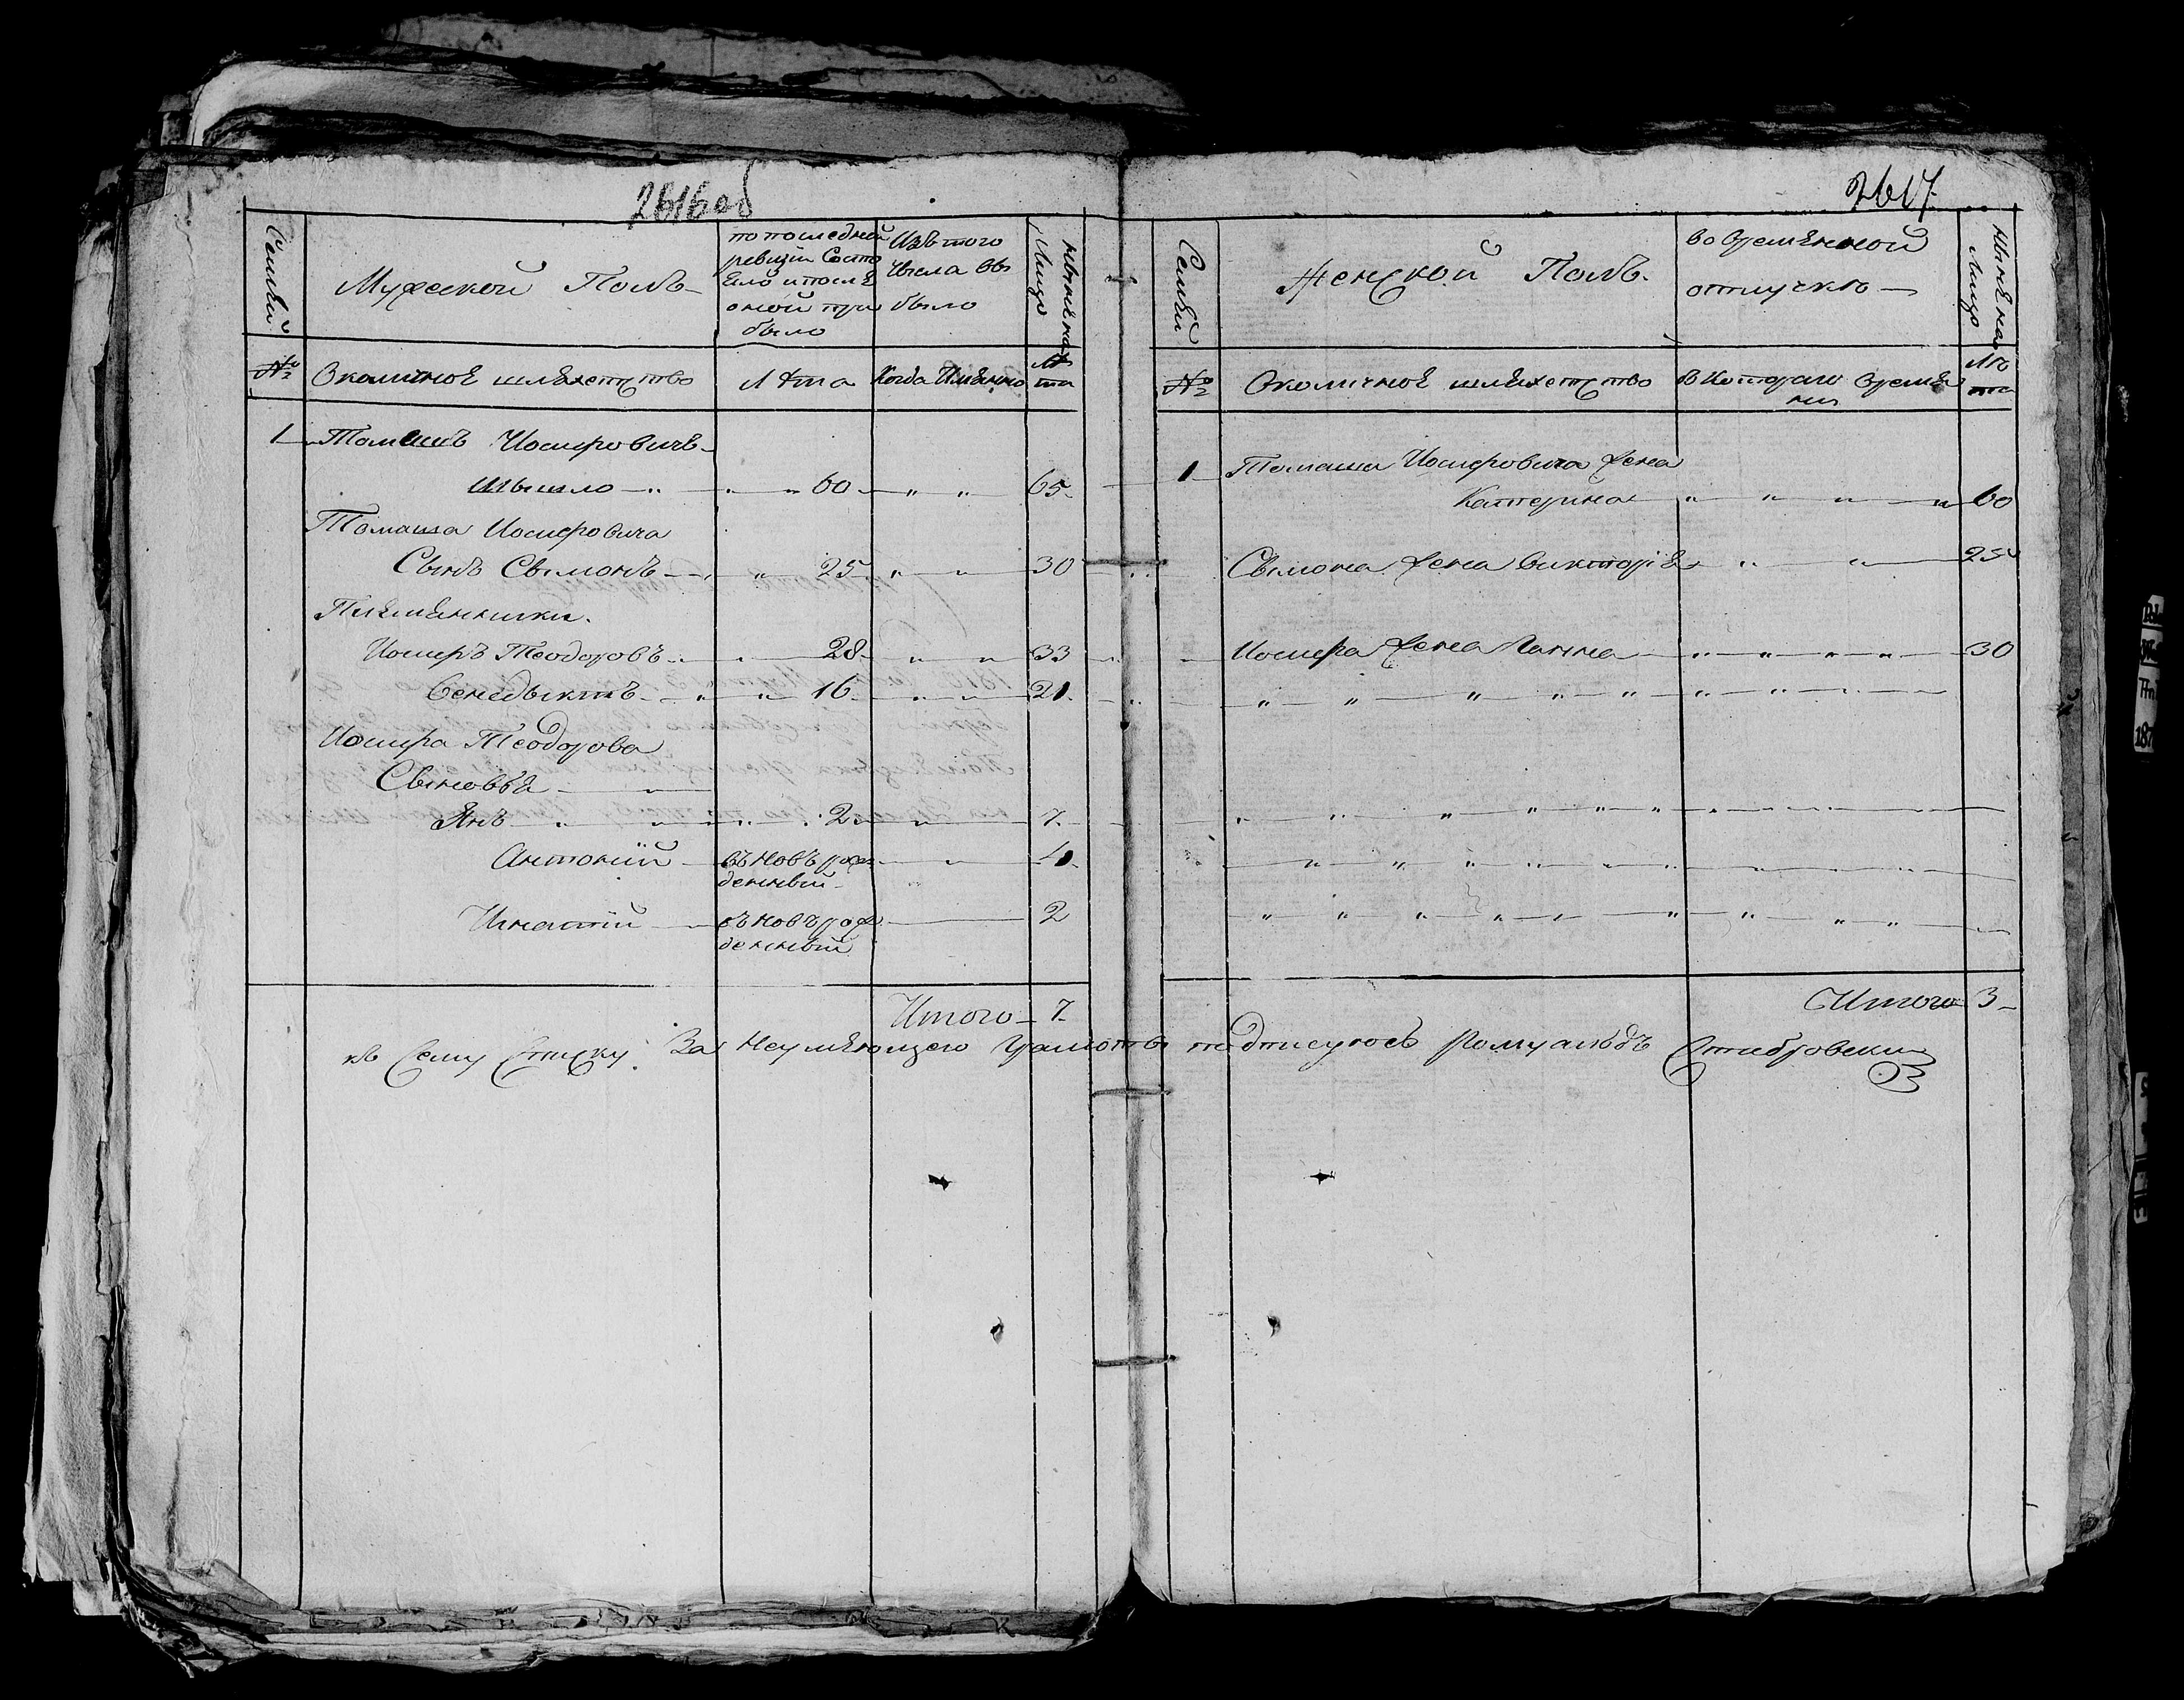 2616об
Семьи
Мужеской Полъ
по последней
ревизіи Состо
яло и после
оной при
было
Изъ того
числа вы
было
Ныне на
Лицо
№
Околичное шляхетство
Лѣта
Когда Именно
Лѣ
та
1 Томашъ Иосиповичъ
60 65
Томаша Иосиповича
Сынъ Сымонъ 25 30
Племянники.
Иосипъ Теодоровъ 28 33
Бенедыктъ 16 21
Иосипа Теодорова
Сыновья
Янъ 2 7
Антоній въновърож
денный
Игнатій въновърож 2
денный
Итого 7
2617
Семьи
Женской Полъ.
во временной
отлучке
Ныне на
Лицо
№
Околичное шляхетство
съ Котораго време
ни
Лѣ
та
1 Томаша Иосиповича жена
Катерина 60
Сымона жена Викторія 25
Иосипа жена Ганна 30
Итого 3
къ Сему Списку За Неумеющего Грамоты подписуюсь Ромуальдъ